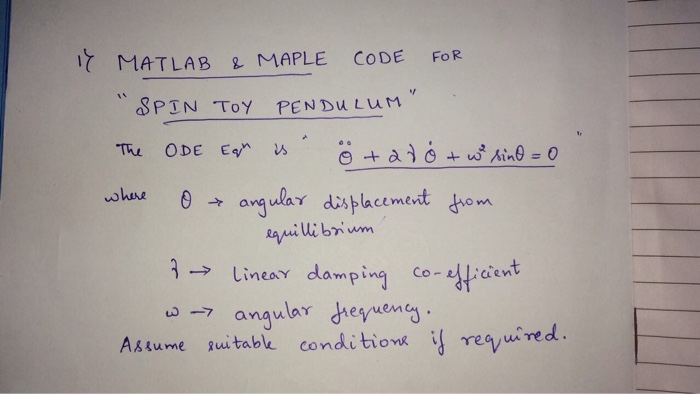 1} MATLAB & MAPLE CODE FOR
"SPIN TOY PENDULUM"
The ODE Eqn is "θ̈ + 2λθ̇ + ω² sinθ = 0"
where θ → angular displacement from
equillibrium
λ → Linear damping co-efficient
ω → angular frequency.
Assume suitable conditions if required.